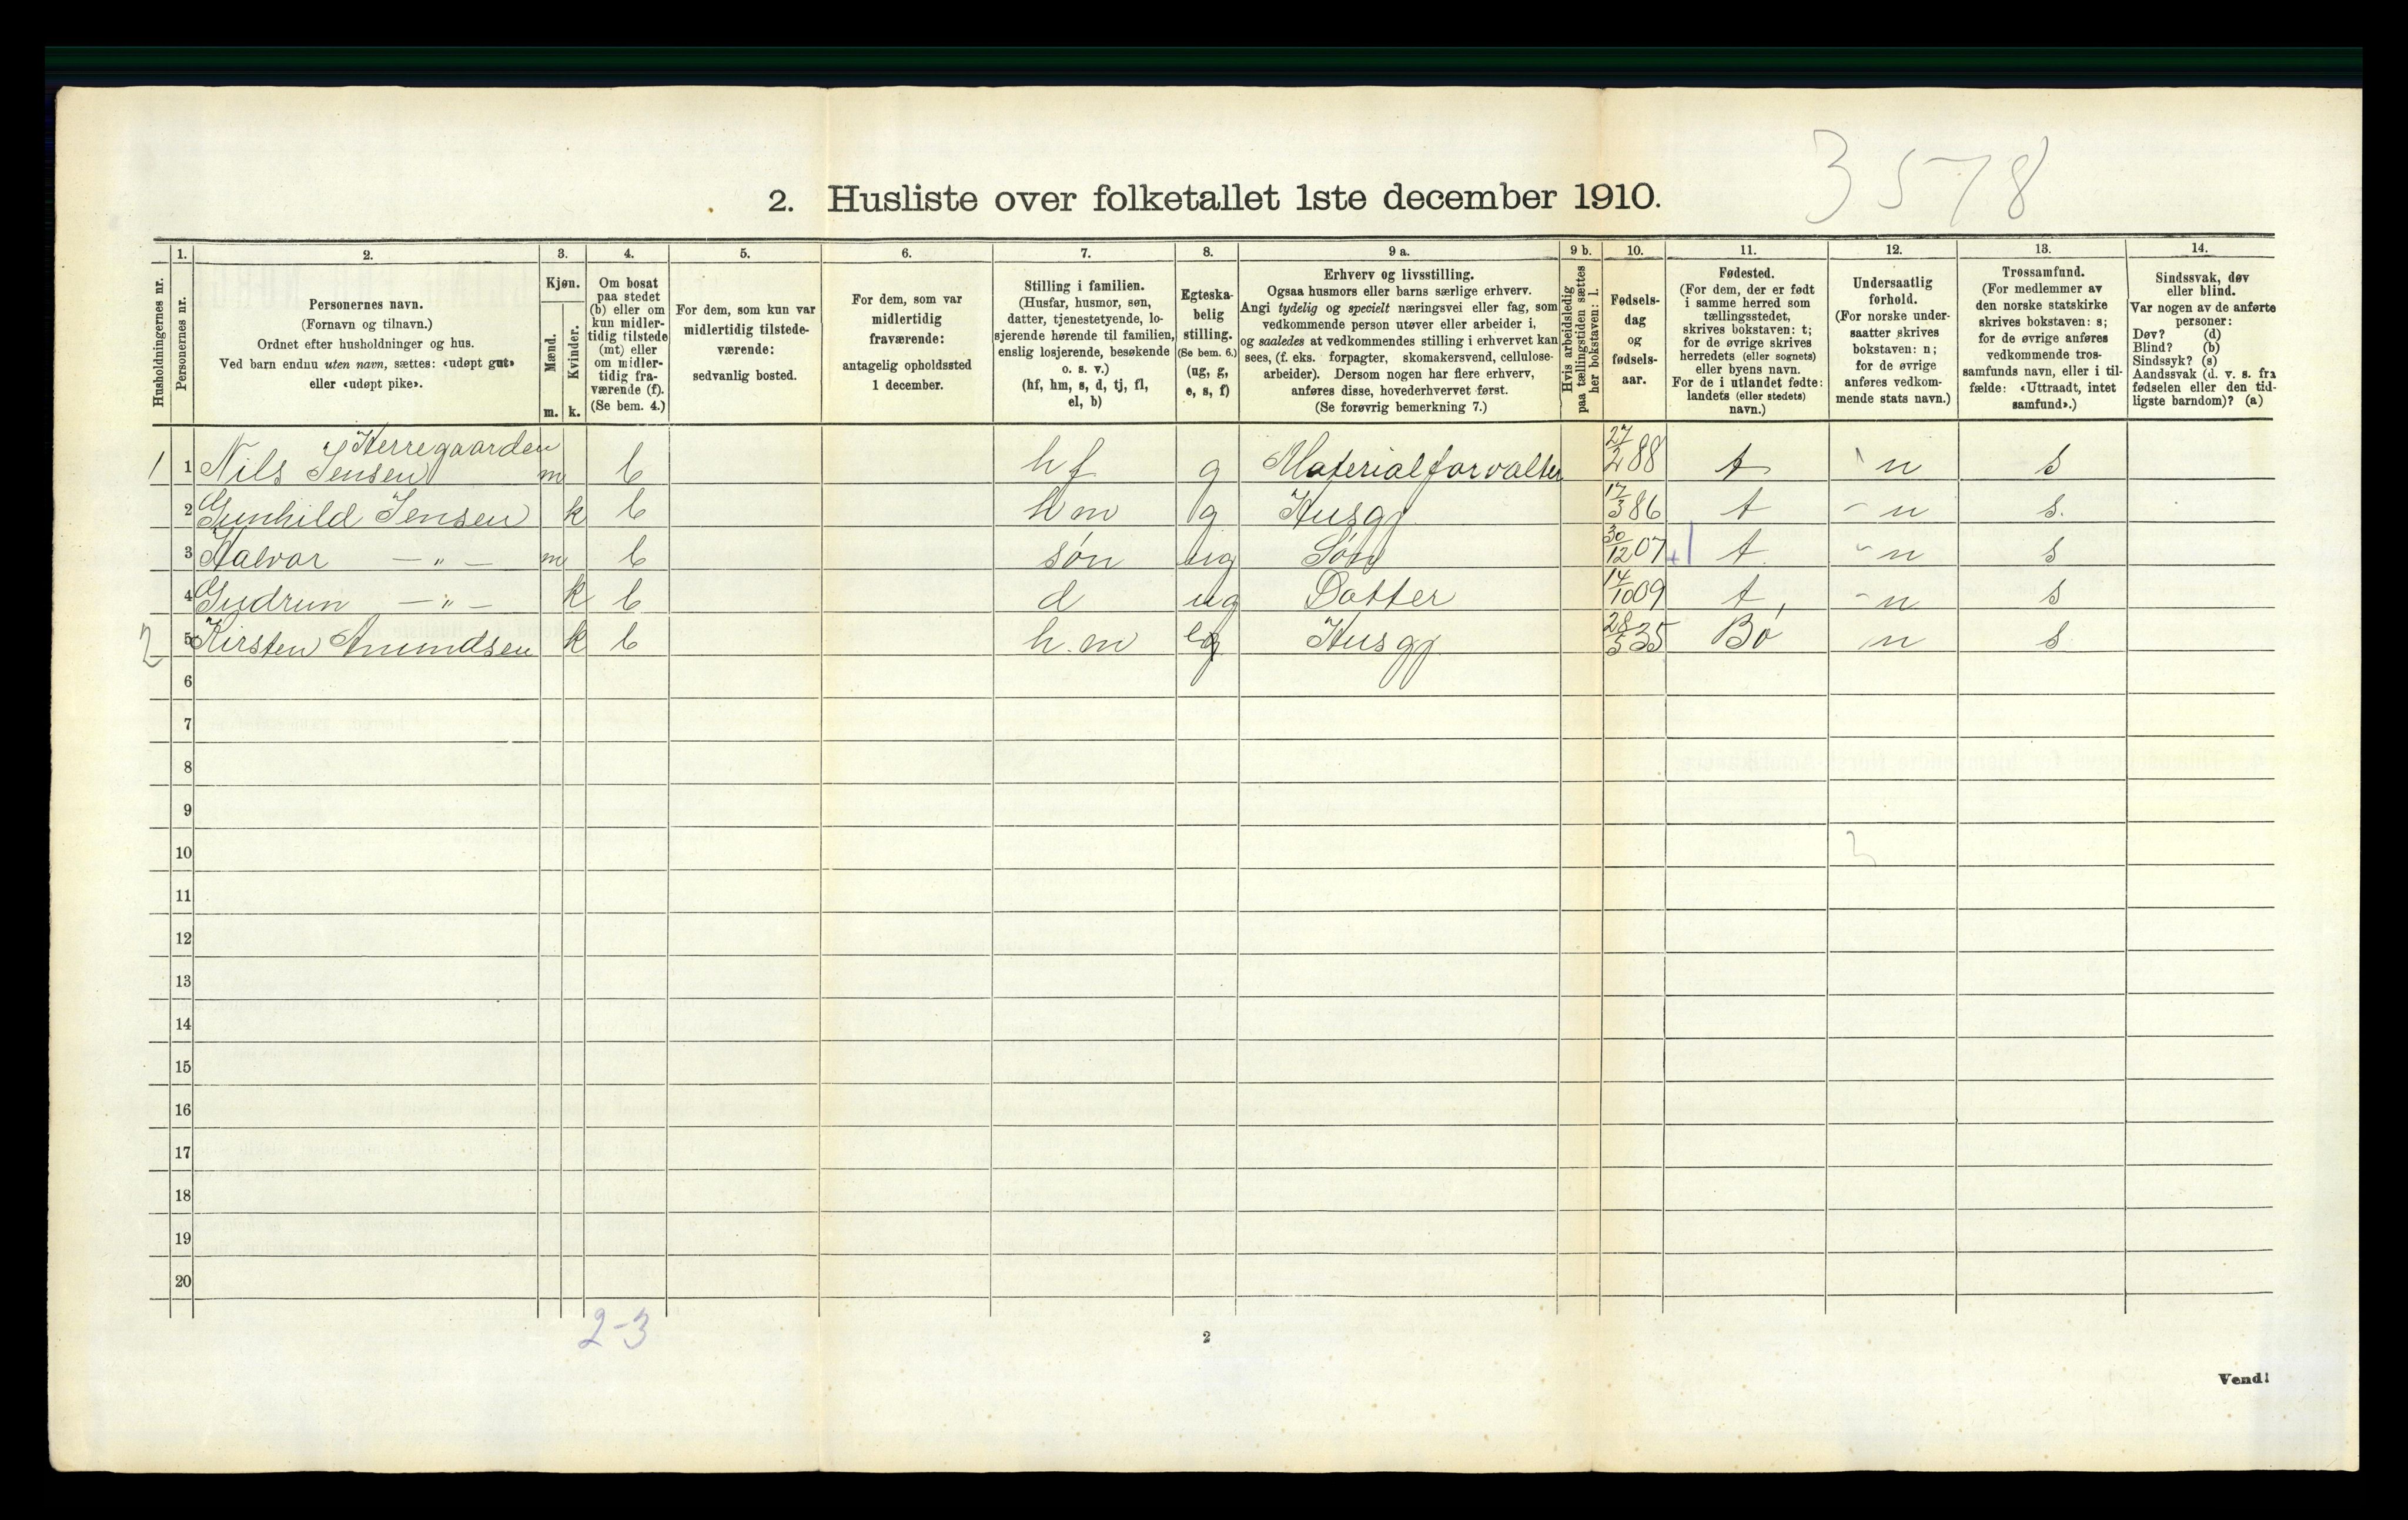 3578
2. Husliste over folketallet 1ste december 1910.
Husholdningernes nr.
1. Personernes nr.
2. Personernes navn.
(Fornavn og tilnavn.)
Ordnet efter husholdninger og hus.
Ved barn endnu uten navn, sættes: «udøpt gut»
eller «udøpt pike».
3. Kjøn.
Mænd. m.
Kvinder. k.
4. Om bosat
paa stedet
(b) eller om
kun midler-
tidig tilstede
(mt) eller
om midler-
tidig fra-
værende (f).
(Se bem. 4.)
5. For dem, som kun var
midlertidig tilstede-
værende:
sedvanlig bosted.
6. For dem, som var
midlertidig
fraværende:
antagelig opholdssted
1 december.
7. Stilling i familien.
(Husfar, husmor, søn,
datter, tjenestetyende, lo-
sjerende hørende til familien,
enslig losjerende, besøkende
o. s. v.)
(hf, hm, s, d, tj, fl,
el, b)
8. Egteska-
belig
stilling.
(Se bem. 6.)
(ug, g,
e, s, f)
9 a. Erhverv og livsstilling.
Ogsaa husmors eller barns særlige erhverv.
Angi tydelig og specielt næringsvei eller fag, som
vedkommende person utøver eller arbeider i,
og saaledes at vedkommendes stilling i erhvervet kan
sees, (f. eks. forpagter, skomakersvend, cellulose-
arbeider). Dersom nogen har flere erhverv,
anføres disse, hovederhvervet først.
(Se forøvrig bemerkning 7.)
9 b. Hvis arbeidsledig
paa tællingstiden sættes
her bokstaven: l.
10. Fødsels-
dag
og
fødsels-
aar.
11. Fødested.
(For dem, der er født
i samme herred som
tællingsstedet,
skrives bokstaven: t;
for de øvrige skrives
herredets (eller sognets)
eller byens navn.
For de i utlandet fødte:
landets (eller stedets)
navn.)
12. Undersaatlig
forhold.
(For norske under-
saatter skrives
bokstaven: n;
for de øvrige
anføres vedkom-
mende stats navn.)
13. Trossamfund.
(For medlemmer av
den norske statskirke
skrives bokstaven: s;
for de øvrige anføres
vedkommende tros-
samfunds navn, eller i til-
fælde: «Uttraadt, intet
samfund».)
14. Sindssvak, døv
eller blind.
Var nogen av de anførte
personer:
Døv? (d)
Blind? (b)
Sindssyk? (s)
Aandssvak (d. v. s. fra
fødselen eller den tid-
ligste barndom)? (a)
Herregaarden
1 1 Nils Jensen m b hf g Materialforvalter 27/2 88 t n s
2 Gunhild Jensen k b hm g Husgj 17/3 86 t n s.
3 Halvor — " — m b søn ug Søn 30/12 07 t n s
4 Gudrun — " — k b d ug Datter 14/10 09 t n s
2 5 Kirsten Amundsen k b h.m Husgj 28/3 35 Bø n s
6
7
8
9
10
11
12
13
14
15
16
17
18
19
20
2-3
2
Vend!